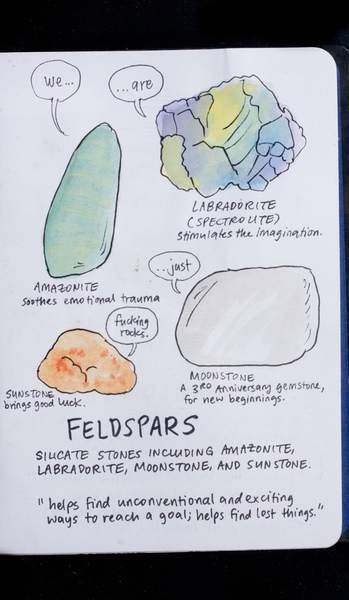 we...
...are
AMAZONITE
soothes emotional trauma
LABRADORITE
(SPECTROLITE)
Stimulates the imagination.
...just
fucking
rocks.
SUNSTONE
brings good luck.
MOONSTONE
A 3RD Anniversary gemstone,
for new beginnings.
FELDSPARS
SILICATE STONES INCLUDING AMAZONITE,
LABRADORITE, MOONSTONE, AND SUNSTONE.
"helps find unconventional and exciting
ways to reach a goal; helps find lost things."